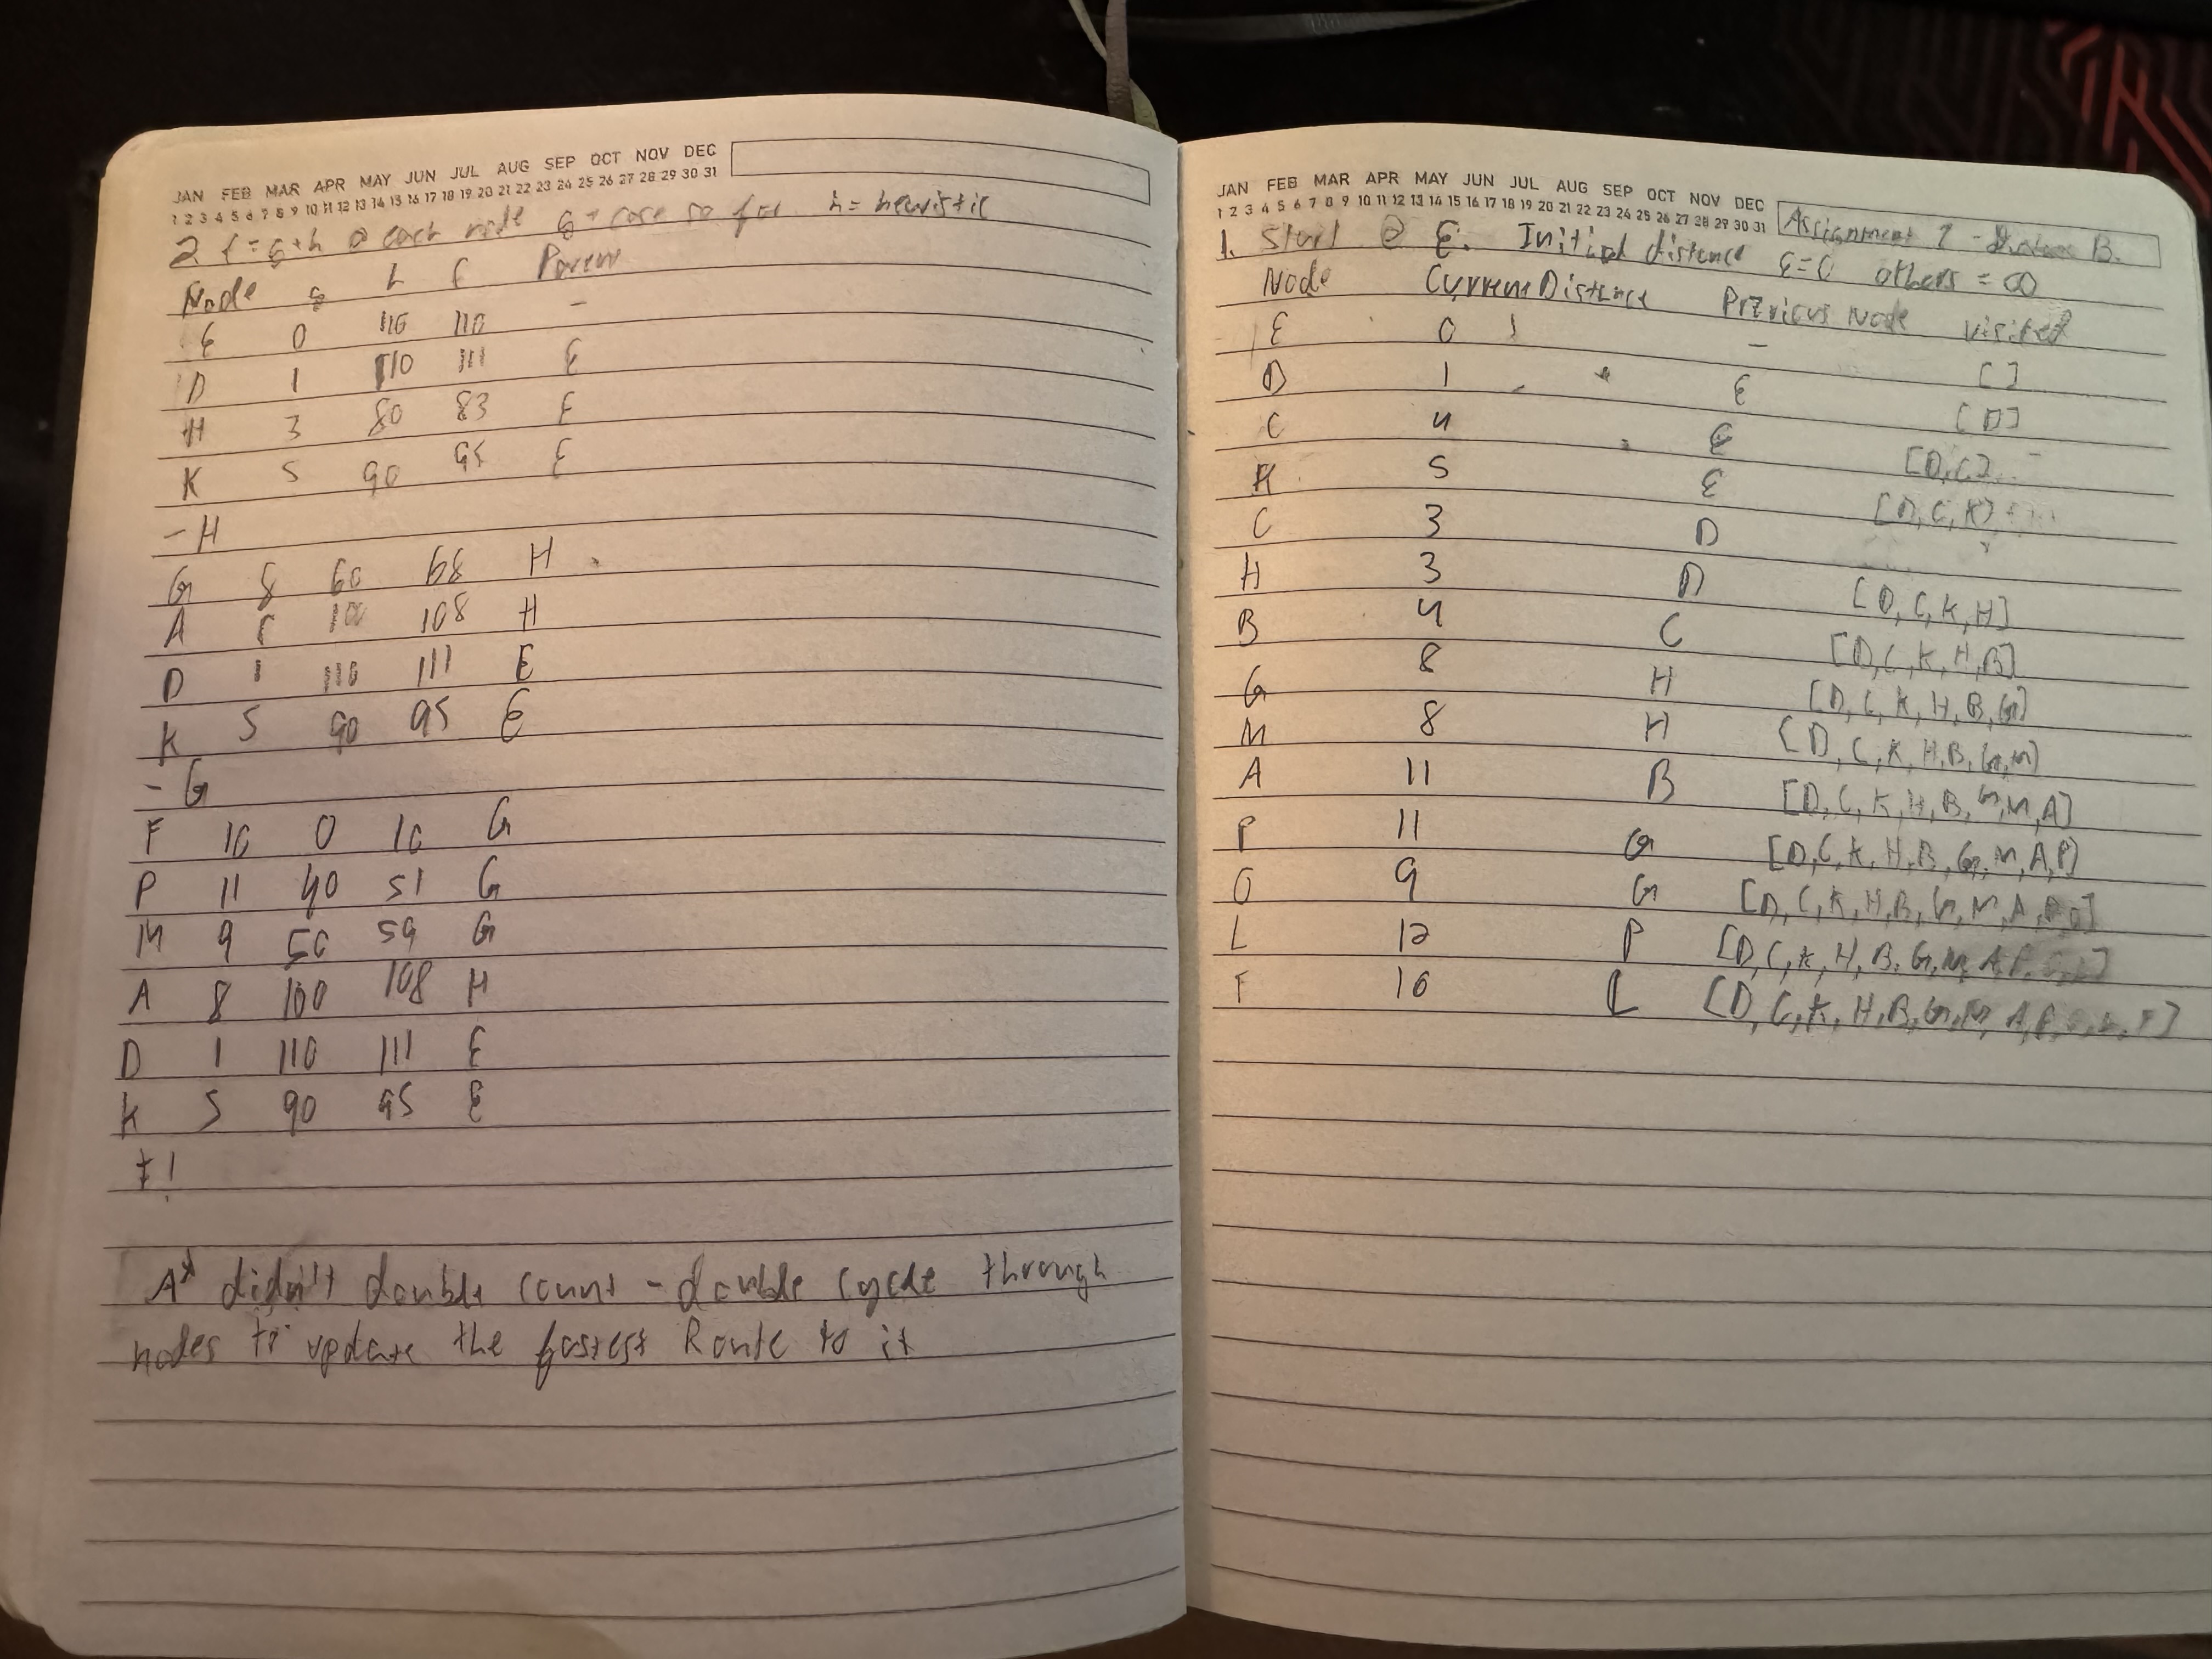 JAN FEB MAR APR MAY JUN JUL AUG SEP OCT NOV DEC
1 2 3 4 5 6 7 8 9 10 11 12 13 14 15 16 17 18 19 20 21 22 23 24 25 26 27 28 29 30 31
2 f = g + h @ each node G + h = heuristic
Node g h f Parent
E 0 110 110 -
D 1 110 111 E
H 3 80 83 E
K 5 90 95 E
- H
G 8 60 68 H
A 8 100 108 H
D 1 110 111 E
K 5 90 95 E
- G
F 10 0 10 G
P 11 40 51 G
M 9 50 59 G
A 8 100 108 H
D 1 110 111 E
K 5 90 95 E
A* didn't double count - double cycle through
nodes to update the fastest Route to it
JAN FEB MAR APR MAY JUN JUL AUG SEP OCT NOV DEC
1 2 3 4 5 6 7 8 9 10 11 12 13 14 15 16 17 18 19 20 21 22 23 24 25 26 27 28 29 30 31
Assignment 7 - B.
1. Start @ E. Initial distance E=0 others = ∞
Node Current Distance Previous Node Visited
E 0 -
D 1 E [ ]
C 4 E [D]
K 5 E [D,C]
C 3 D [D,C,K]
H 3 D [D,C,K,H]
B 4 C [D,C,K,H,B]
G 8 H [D,C,K,H,B,G]
M 8 H [D,C,K,H,B,G,M]
A 11 B [D,C,K,H,B,G,M,A]
P 11 G [D,C,K,H,B,G,M,A,P]
O 9 G [D,C,K,H,B,G,M,A,P,O]
L 12 P
F 10 L